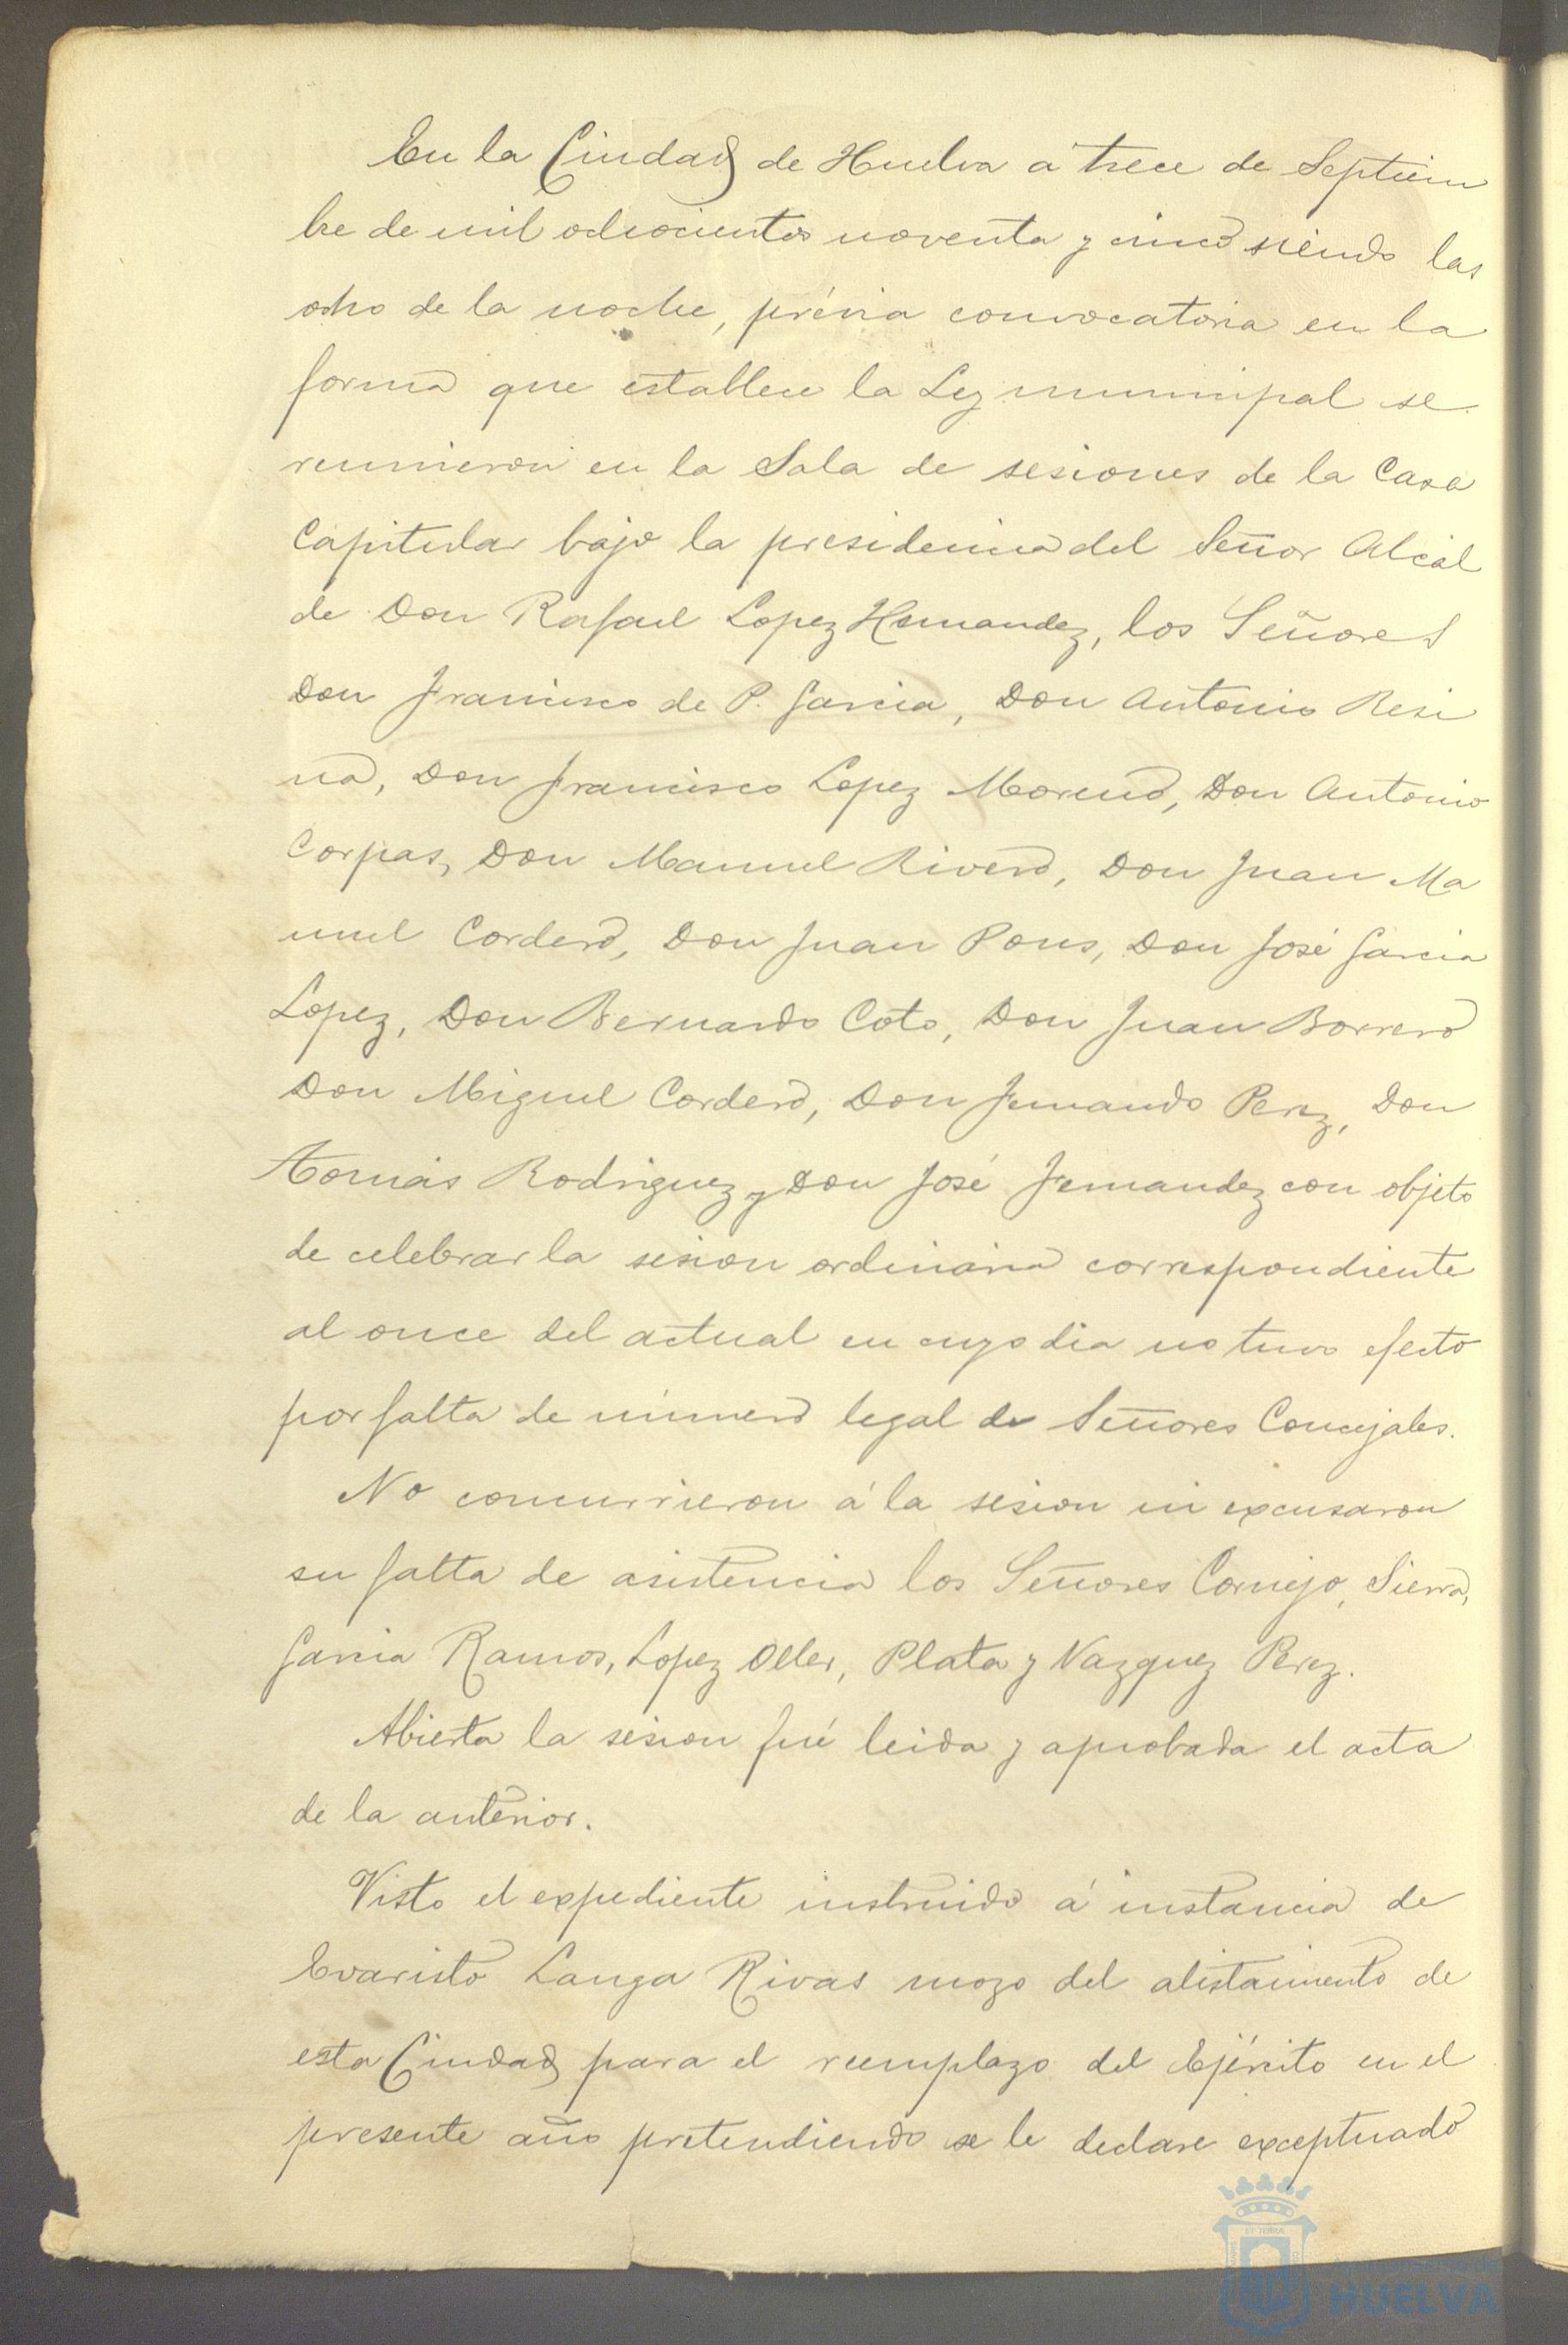 En la Ciudad de Huelva á trece de Septiem
bre de mil ochocientos noventa y cinco siendo las
ocho de la noche, prévia convocatoria en la
forma que establece la Ley municipal se
reunieron en la Sala de sesiones de la Casa
Capitular bajo la presidencia del Señor Alcal
de Don Rafael Lopez Hernandez, los Señores
Don Francisco de P. Garcia, Don Antonio Resi
na, Don Francisco Lopez Moreno, Don Antonio
Corpas, Don Manuel Rivero, Don Juan Ma
nuel Cordero, Don Juan Pons, Don José Garcia
Lopez, Don Bernardo Coto, Don Juan Borrero
Don Miguel Cordero, Don Fernando Perez, Don
Tomás Rodriguez y Don José Fernandez con objeto
de celebrar la sesion ordinaria correspondiente
al once del actual en cuyo dia no tuvo efecto
por falta de número legal de Señores Concejales.
No concurrieron á la sesion ni excusaron
su falta de asistencia los Señores Cornejo, Sierra,
Garcia Ramos, Lopez Oller, Plata y Vazquez Perez.
Abierta la sesion fué leida y aprobada el acta
de la anterior.
Visto el expediente instruido á instancia de
Evaristo Langa Rivas mozo del alistamiento de
esta Ciudad para el reemplazo del Ejército en el
presente año pretendiendo se le declare exceptuado
HUELVA